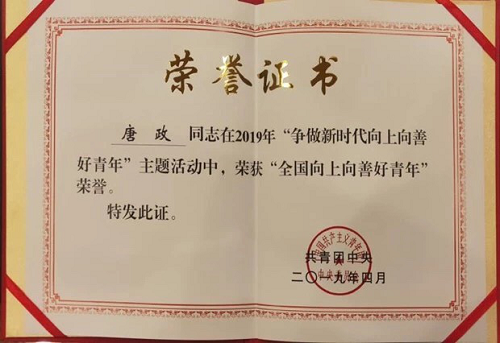 荣誉证书
唐 政 同志在2019年“争做新时代向上向善
好青年”主题活动中，荣获“全国向上向善好青年”
荣誉。
特发此证。
共青团中央
二〇一九年四月